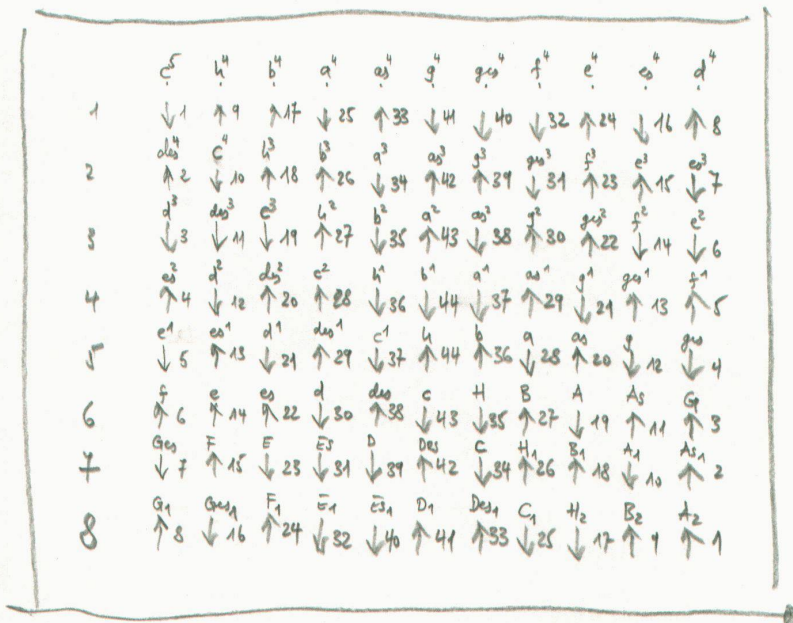 c⁵ h⁴ b⁴ a⁴ as⁴ g⁴ ges⁴ f⁴ e⁴ es⁴ d⁴
1 ↓1 ↑9 ↑17 ↓25 ↑33 ↓41 ↓40 ↓32 ↑24 ↓16 ↑8
des⁴ c⁴ h³ b³ a³ as³ g³ ges³ f³ e³ es³
2 ↑2 ↓10 ↑18 ↑26 ↓34 ↑42 ↑39 ↓31 ↑23 ↑15 ↓7
d³ des³ c³ h² b² a² as² g² ges² f² e²
3 ↓3 ↓11 ↓19 ↑27 ↓35 ↑43 ↓38 ↑30 ↑22 ↓14 ↓6
es² d² des² c² h¹ b¹ a¹ as¹ g¹ ges¹ f¹
4 ↑4 ↓12 ↑20 ↑28 ↓36 ↓44 ↓37 ↑29 ↓21 ↑13 ↑5
e¹ es¹ d¹ des¹ c¹ h b a as g ges
5 ↓5 ↑13 ↓21 ↑29 ↓37 ↑44 ↑36 ↓28 ↑20 ↓12 ↓4
f e es d des c H B A As G
6 ↑6 ↑14 ↑22 ↓30 ↑38 ↓43 ↓35 ↑27 ↓19 ↑11 ↑3
Ges F E Es D Des C H₁ B₁ A₁ As₁
7 ↓7 ↑15 ↓23 ↓31 ↓39 ↑42 ↓34 ↑26 ↑18 ↓10 ↑2
G₁ Ges₁ F₁ E₁ Es₁ D₁ Des₁ C₁ H₂ B₂ A₂
8 ↑8 ↓16 ↑24 ↓32 ↓40 ↑41 ↑33 ↓25 ↓17 ↑9 ↑1